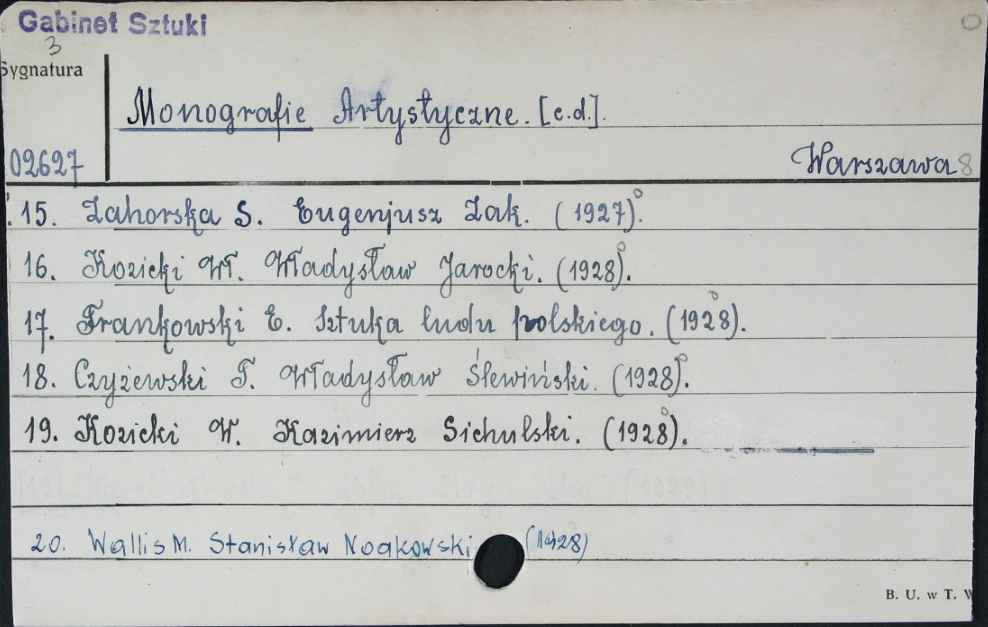 Gabinet Sztuki
3
Sygnatura
Monografie Artystyczne. [c.d.].
02627
Warszawa 8
15. Zahorska S. Eugenjusz Zak. (1927).
16. Kozicki Wł. Władysław Jarocki. (1928).
17. Frankowski E. Sztuka ludu polskiego. (1928).
18. Czyżewski T. Władysław Ślewiński. (1928).
19. Kozicki W. Kazimierz Sichulski. (1928).
20. Wallis M. Stanisław Noakowski (1928)
B. U. w T. W